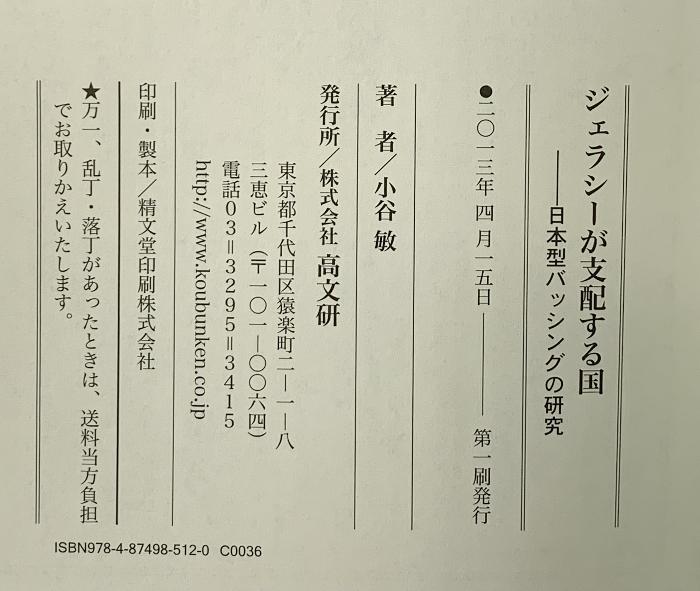 ジェラシーが支配する国
――日本型バッシングの研究
●二〇一三年 四 月一五日――――第一刷発行
著　者／小谷 敏
発行所／株式会社 高文研
東京都千代田区猿楽町二―一―八
三恵ビル（〒一〇一―〇〇六四）
電話０３＝３２９５＝３４１５
http://www.koubunken.co.jp
印刷・製本／精文堂印刷株式会社
★万一、乱丁・落丁があったときは、送料当方負担
でお取りかえいたします。
ISBN978-4-87498-512-0 C0036